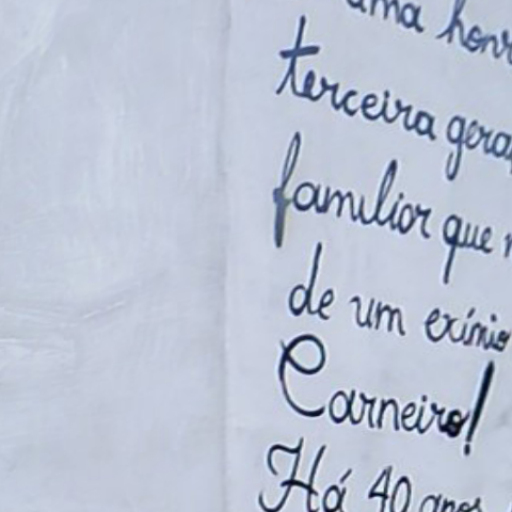 uma honr
terceira gera
familiar que
de um exímio
Carneiro!
Há 40 anos